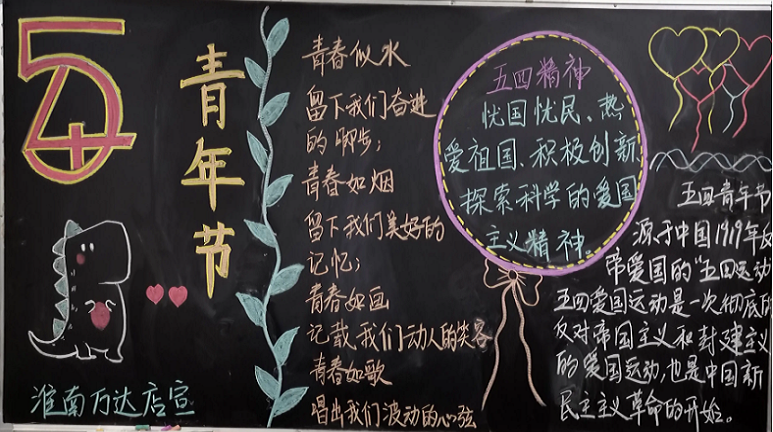 54
青年节
淮南万达店宣
青春似水
留下我们奋进
的脚步；
青春如烟
留下我们美好的
记忆；
青春如画
记载我们动人的笑容
青春如歌
唱出我们波动的心弦
五四精神
忧国忧民、热
爱祖国、积极创新
探索科学的爱国
主义精神
五四青年节
源于中国1919年反
帝爱国的“五四运动
五四爱国运动是一次彻底的
反对帝国主义和封建主义
的爱国运动,也是中国新
民主主义革命的开始。